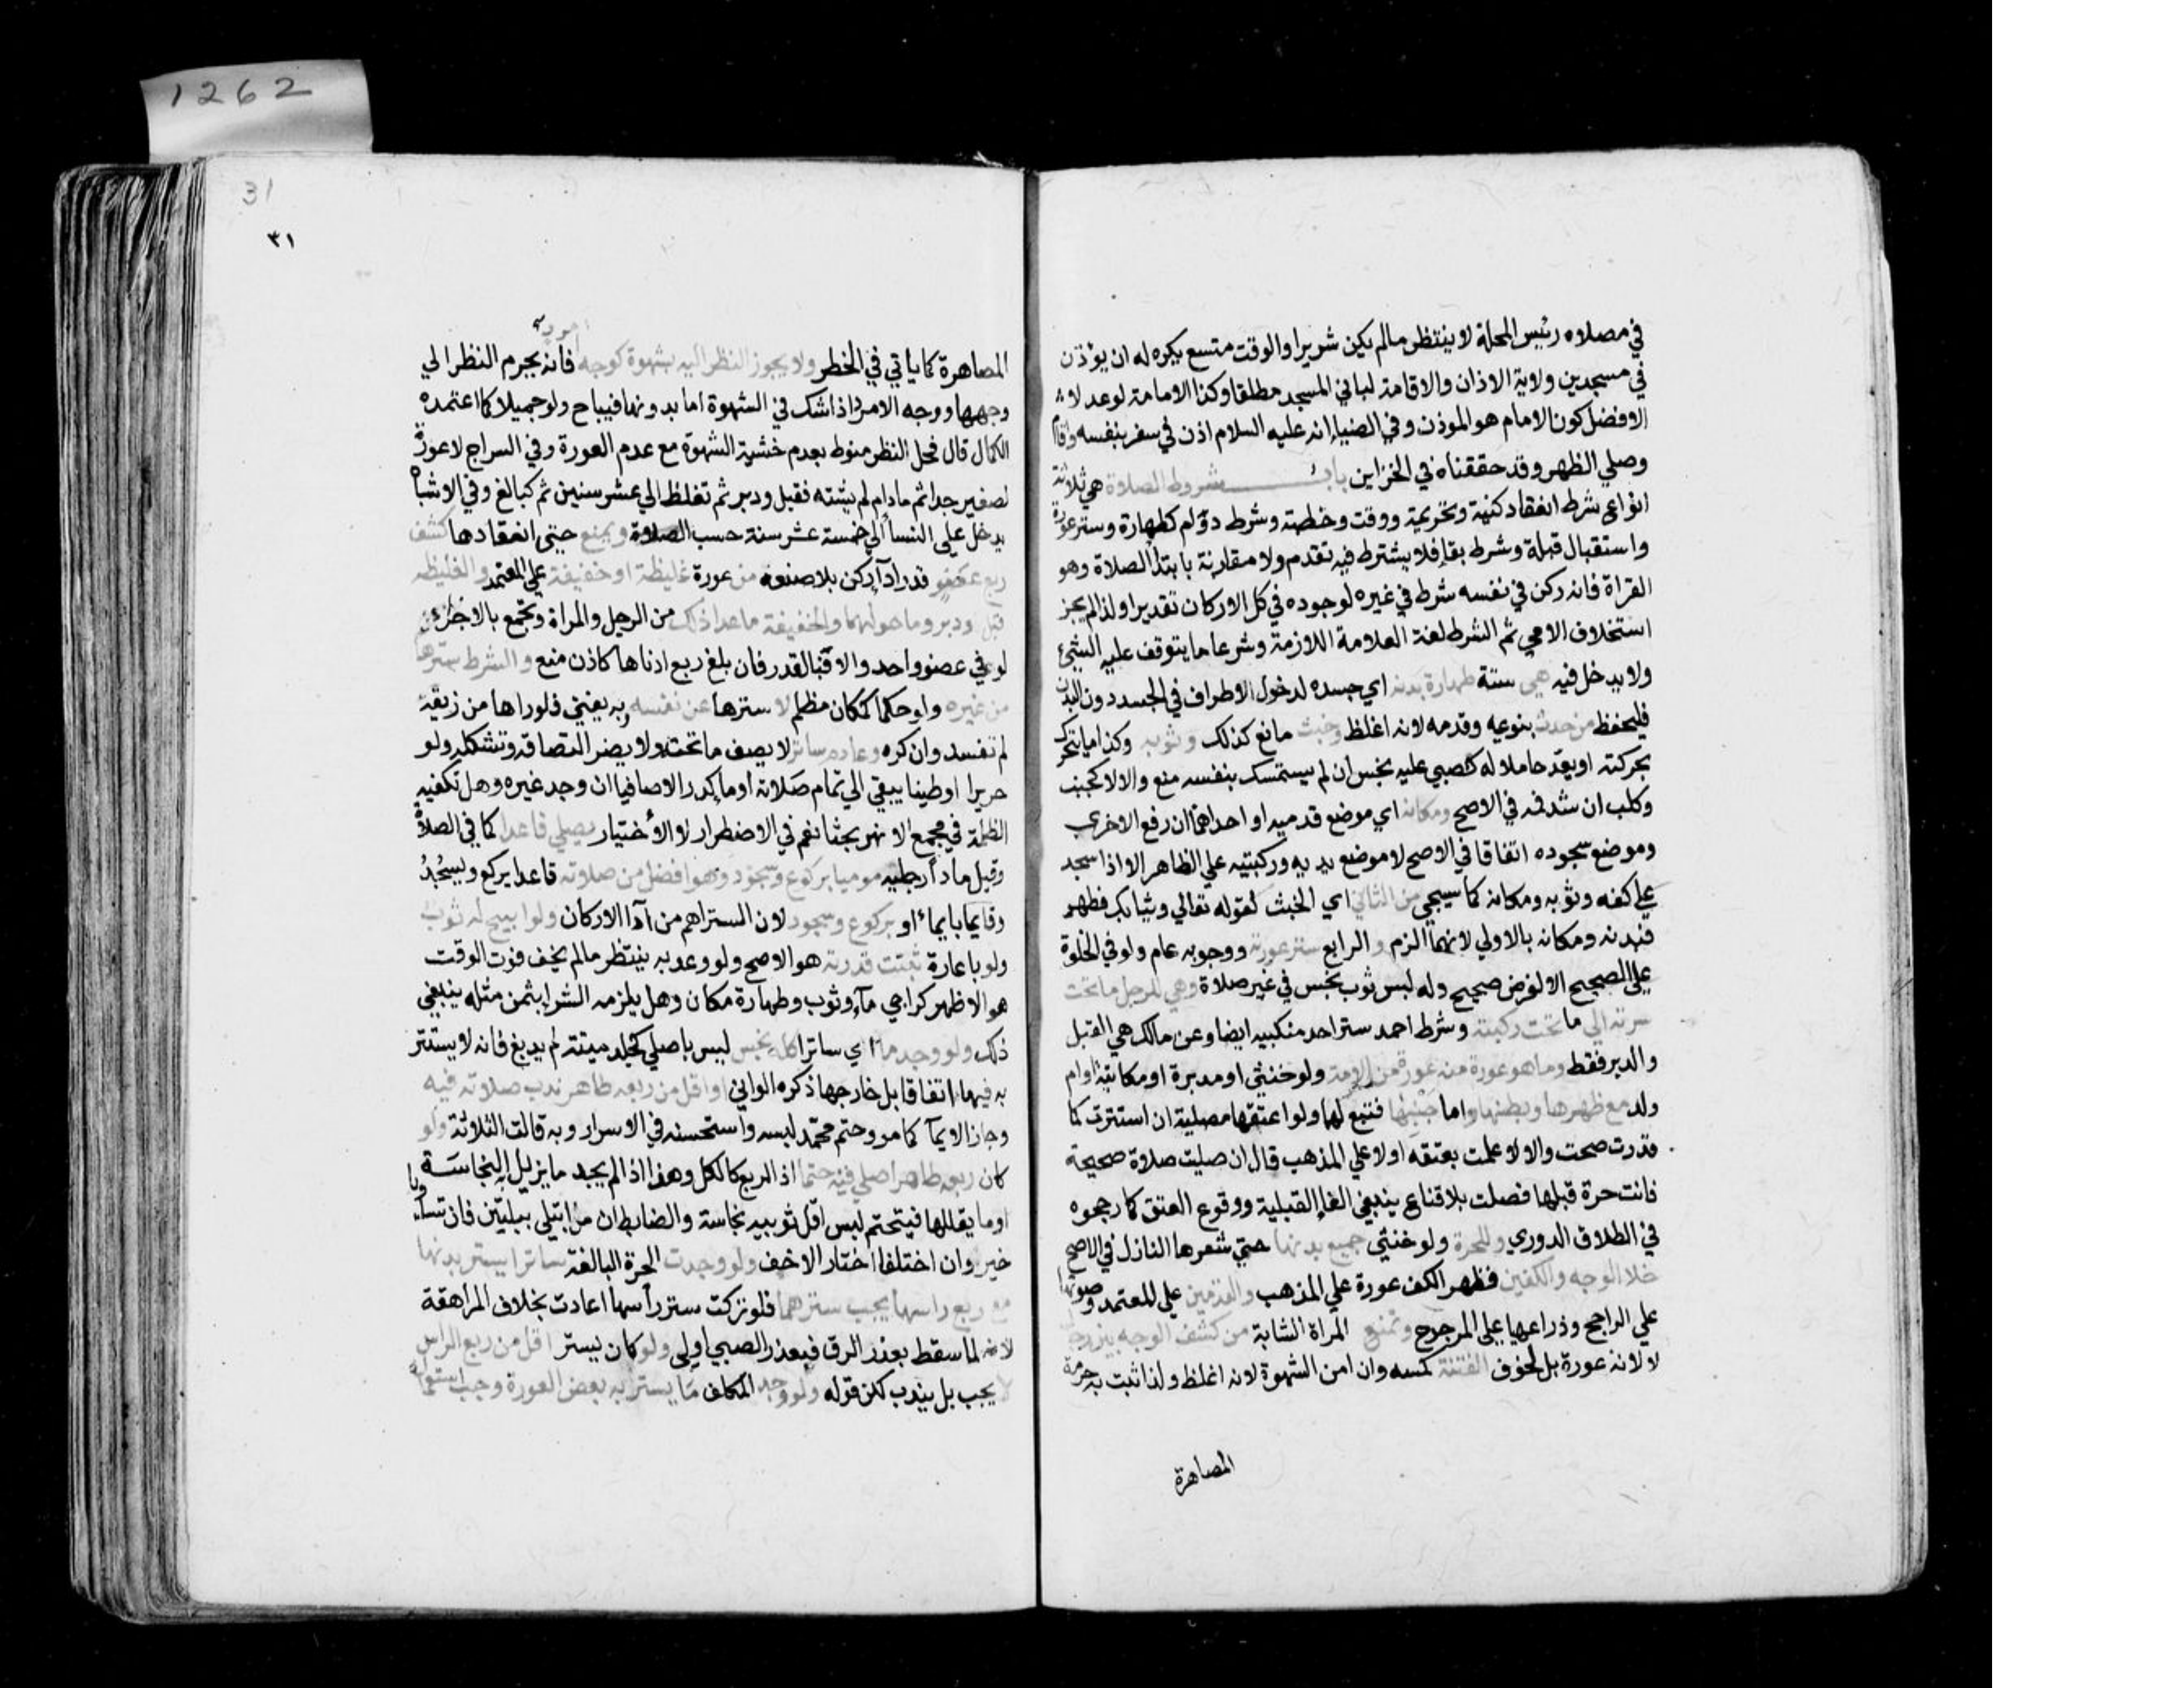 1262
في مصلاه رئيس المحلة لا ينتظر مالم يكن شريرا والوقت متسع يكره له ان يؤذن
في مسجدين ولاية الاذان والاقامة لباني المسجد مطلقا وكذا الامامة لو عدلا
الافضل كون الامام هو الموذن وفي الضيا انه عليه السلام اذن في سفر بنفسه واقام
وصلي الظهر وقد حققناه في الخزاين باب شروط الصلاة هي ثلاثة
انواع شرط انعقاد كنية وتحريمة ووقت وخطبة وشرط دوام كطهارة وستر عورة
واستقبال قبلة وشرط بقا فلا يشترط فيه تقدم ولا مقارنة بابتدا الصلاة وهو
القراة فانه ركن في نفسه شرط في غيره لوجوده في كل الاركان تقديرا ولذا لم يجز
استخلاف الامي ثم الشرط لغة العلامة اللازمة وشرعا ما يتوقف عليه الشئ
ولا يدخل فيه هي ستة طهارة بدنه اي جسده لدخول الاطراف في الجسد دون البدن
فليحفظ من حدث بنوعيه وقدمه لانه اغلظ وخبث مانع كذلك وثوبه وكذا ما يتحرك
بحركته او يعد حاملا له كصبي عليه نجس ان لم يستمسك بنفسه منع والا لا كجنب
وكلب ان شد فمه في الاصح ومكانه اي موضع قدميه او احداهما ان رفع الاخري
وموضع سجوده اتفاقا في الاصح لا موضع يديه وركبتيه علي الظاهر الا اذا سجد
علي كفه وثوبه ومكانه كما سيجي من الثاني اي الخبث لقوله تعالي وثيابك فطهر
فبدنه ومكانه بالاولي لانهما الزم والرابع ستر عورته ووجوبه عام ولو في الخلوة
علي الصحيح الا لغرض صحيح وله لبس ثوب نجس في غير صلاة وهي للرجل ما تحت
سرته الي ما تحت ركبته وشرط احمد ستر احد منكبيه ايضا وعن مالك هي القبل
والدبر فقط وما هو عورة منه عورة من الامة ولو خنثي او مدبرة او مكاتبة او ام
ولد مع ظهرها وبطنها واما جنبها فتبع لهما ولو اعتقها مصلية ان استترت كما
قدرت صحت والا لا علمت بعتقه اولا علي المذهب قال ان صليت صلاة صحيحة
فانت حرة قبلها فصلت بلا قناع ينبغي الغا القبلية ووقوع العتق كما رجحوه
في الطلاق الدوري وللحرة ولو خنثي جميع بدنها حتي شعرها النازل في الاصح
خلا الوجه والكفين فظهر الكف عورة علي المذهب والقدمين علي المعتمد وصوتها
علي الراجح وذراعيها علي المرجوح وتمنع المراة الشابة من كشف الوجه بين رجال
لا لانه عورة بل لخوف الفتنة كمسه وان امن الشهوة لانه اغلظ ولذا ثبت به حرمة
المصاهرة
31
٣١
امرد
المصاهرة كما ياتي في الخطر ولا يجوز النظر اليه بشهوة كوجه فانه يحرم النظر الي
وجهها ووجه الامرد اذا شك في الشهوة اما بدونها فيباح ولو جميلا كما اعتمده
الكمال قال فحل النظر منوط بعدم خشية الشهوة مع عدم العورة وفي السراج لا عورة
لصغير جدا ثم مادام لم يشته فقبل ودبر ثم تغلظ الي عشر سنين ثم كبالغ وفي الاشباه
يدخل علي النسا الي خمسة عشر سنة حسب الصلاة ويمنع حتي انعقادها كشف
ربع عضو قدر ادآ ركن بلا صنعه من عورة غليظة او خفيفة علي المعتمد والغليظة
قبل ودبر وما حولهما والخفيفة ما عدا ذلك من الرجل والمراة وتجمع بالاجزاء
لو في عضو واحد والا فبالقدر فان بلغ ربع ادناها كاذن منع والشرط سترها
من غيره ولو حكما كمكان مظلم لا سترها عن نفسه وبه يفتي فلو راها من زيقه
لم تفسد وان كره وعادم ساتر لا يصف ما تحته ولا يضر التصاقه وتشكله ولو
حريرا او طينا يبقي الي تمام صلاته او ماء كدر الا صافيا ان وجد غيره وهل تكفيه
الظلمة في مجمع الانهر بحثا نعم في الاضطرار لا الاختيار يصلي قاعدا كما في الصلاة
وقيل مادا رجليه موميا بركوع وسجود وهو افضل من صلاته قاعدا يركع ويسجد
وقايما بايماء او بركوع وسجود لان الستر اهم من ادآ الاركان ولو ابيح له ثوب
ولو باعارة ثبتت قدرته هو الاصح ولو وعد به ينتظر مالم يخف فوت الوقت
هو الاظهر كراجي مآء وثوب وطهارة مكان وهل يلزمه الشرا بثمن مثله ينبغي
ذلك ولو وجد ما اي ساترا كله نجس ليس باصلي كجلد ميتة لم يدبغ فانه لا يستتر
به فيها اتفاقا بل خارجها ذكره الواني او اقل من ربعه طاهر ندب صلاته فيه
وجاز الايمآ كما مر وحتم محمد لبسه واستحسنه في الاسرار وبه قالت الثلاثة ولو
كان ربعه طاهرا صلي فيه حتما اذ الربع كالكل وهذا اذا لم يجد ما يزيل به النجاسة
او ما يقللها فيتحتم لبس اقل ثوبيه نجاسة والضابط ان من ابتلي ببليتين فان تساويا
خير وان اختلفا اختار الاخف ولو وجدت الحرة البالغة ساترا يستر بدنها
مع ربع راسها يجب سترهما فلو تركت ستر رأسها اعادت بخلاف المراهقة
لانه لما سقط بعذر الرق فبعذر الصبي اولي ولو كان يستر اقل من ربع الراس
لا يجب بل يندب لكن قوله ولو وجد المكلف ما يستر به بعض العورة وجب استعماله